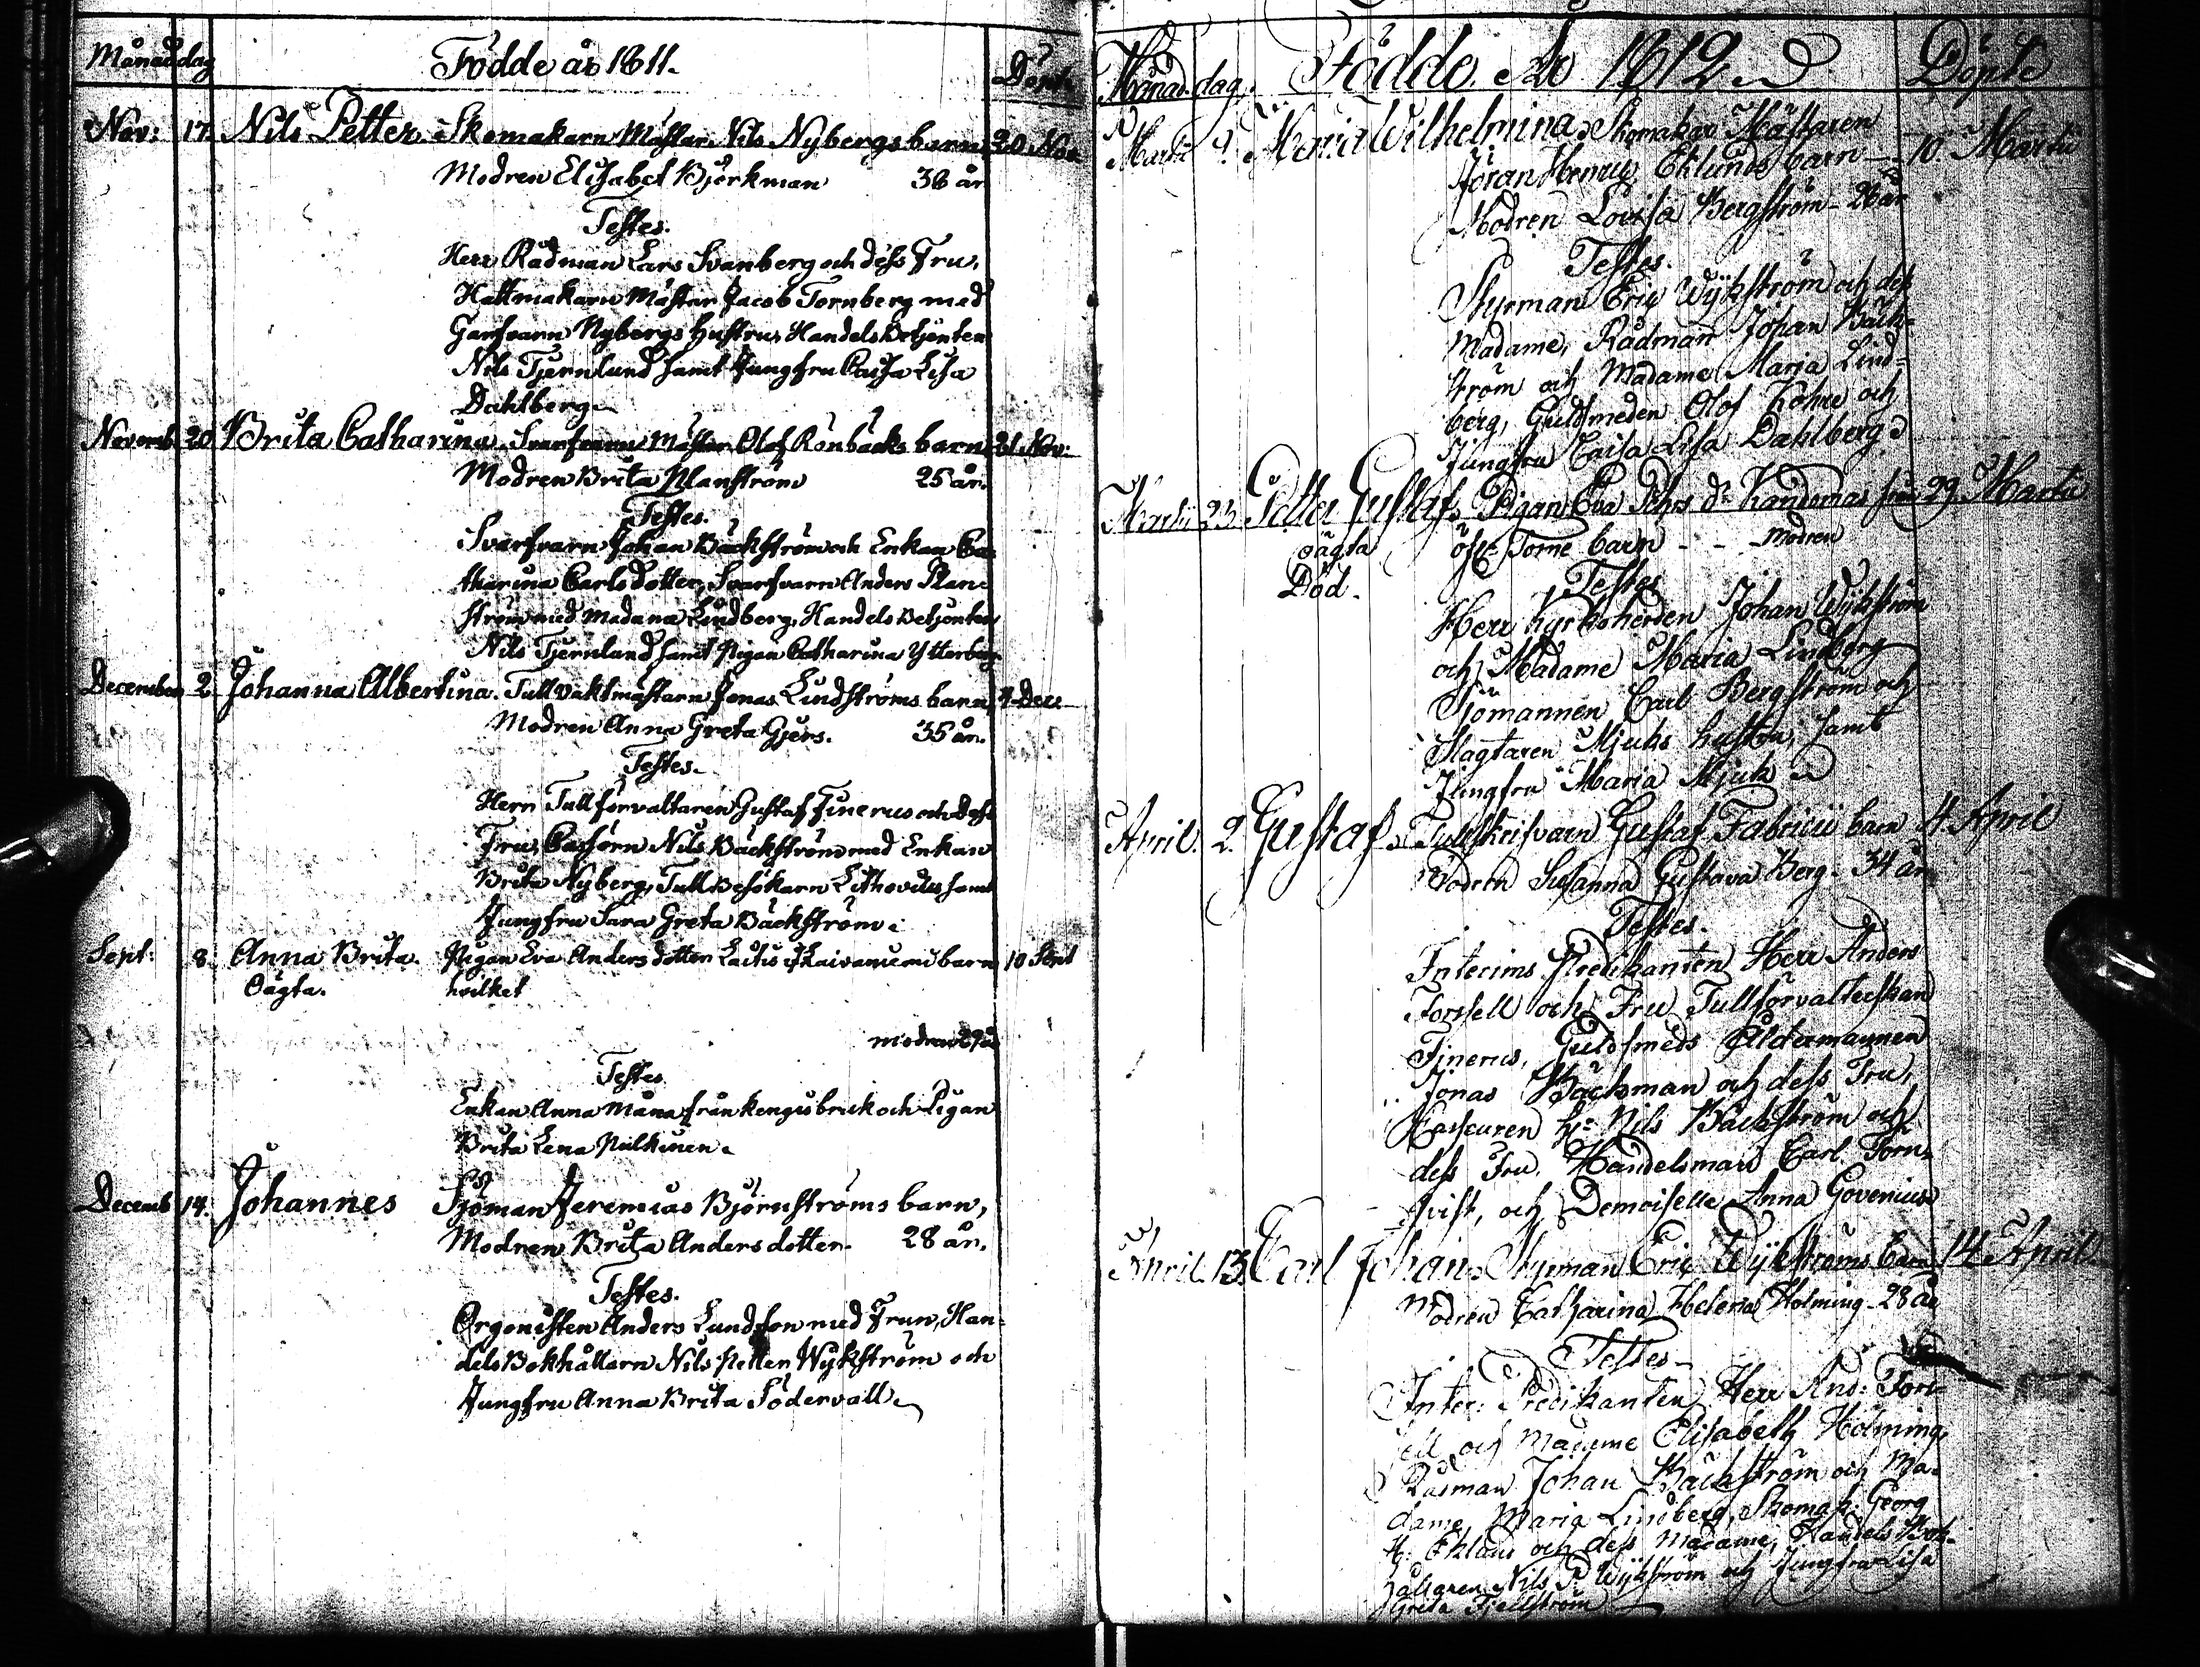 Månad dag Födde år 1811. Döpt.
Nov: 17. Nils Petter. Skomakarn Mäster Nils Nybergs barn 20 Nov.
Modren Elisabet Björkman 38 år
Testes.
Herr Rådman Lars Svanberg och dess Fru,
Hattmakarn Mäster Jacob Tornberg med
Garfvarn Nybergs Hustru, Handels Betjenten
Nils Tjernlund samt Jungfru Caisa Lisa
Dahlberg.
Novemb 20 Brita Catharina. Svarfvarn Mäster Olof Rönbäcks barn 21 Nov:
Modren Brita Planström 25 år.
Testes.
Svarfvarn Johan Bäckström och Enkan Ca
tharina Carlsdotter, Svarfvarn Anders Plan=
ström med Madame Lindberg, Handels Betjenten
Nils Tjernlund samt Pigan Catharina Ytterberg
December 2. Johanna Albertina. Tullvaktmästarn Jonas Lindströms barn 4 Dec
Modren Anna Greta Gjers. 35 år.
Testes.
Herr Tullförvaltaren Gustaf Finerus och dess
Fru, Nils Bäckström med Enkan
Brita Nyberg, Tull Besökarn Lithovius samt
Jungfru Sara Greta Bäckström.
Sept: 8. Anna Brita. Pigan Eva Andersdotter barn 10 Sept
Oägta. hvilket
modren
Testes
Enkan Anna Måna från Kengis bruk och Pigan
Brita Lena
Decemb 14. Johannes Sjöman Jeremias Björnströms barn,
Modren Brita Andersdotter. 28 år.
Testes.
Orgonisten Anders Lundson med Frun, Han=
dels Bokhållarn Nils Petter Wykström och
Jungfru Anna Brita Södervall.
Månad dag. Födde Åo 1812. Döpte
Martii Maria Wilhelmina. Skomakar Mästaren 10. Martii
Göran Henric Eklunds barn
Modren Lovisa Bergström - 26 år
Testes.
Styrman Eric Wÿkström och dess
Madame, Rådman Johan Bäck=
ström och Madame Maria Lind=
berg, Guldsmeden Olof och
Jungfru Caisa Lisa Dahlberg.
Martii 23 Petter Gustaf. Pigan Eva från 29. Martii
oägta öfr Torne barn - - Modren
Död.
Testes
Herr Kyrkoherden Johan Wÿkström
och Madame Maria Lindberg
Sjömannen Carl Bergström och
Slagtaren Mjuks hustru, samt
Jungfru Maria Mjuk
April. 2. Gustaf. Tullskrifvarn Gustaf Fabricii barn 4 April
Modren Susanna Gustava Berg. 34 år
Testes.
Interims Predikanten Herr Anders
Forssell och Fru Tullförvalterskan
Finerus, Guldsmeds Åldermannen
Jonas Bäckman och dess Fru,
Nils Bäckström och
dess Fru, Handelsman Carl Torn=
qvist, och Demoiselle Anna Govenius
April. 13. Carl Johan. Styrman Eric Wÿkströms barn 14 April.
Modren Catharina Helena Holming - 28 år
Testes
Inter: Predikanten Herr And: Fors=
sell och Madame Elisabeth Holming,
Rådman Johan Bäckström och Ma=
dame Maria Lindberg, Skomak: Georg
H. Eklund och dess Madame, Handels Bok=
hållaren Nils P. Wÿkström och Jungfru Lisa
Greta Fjellström